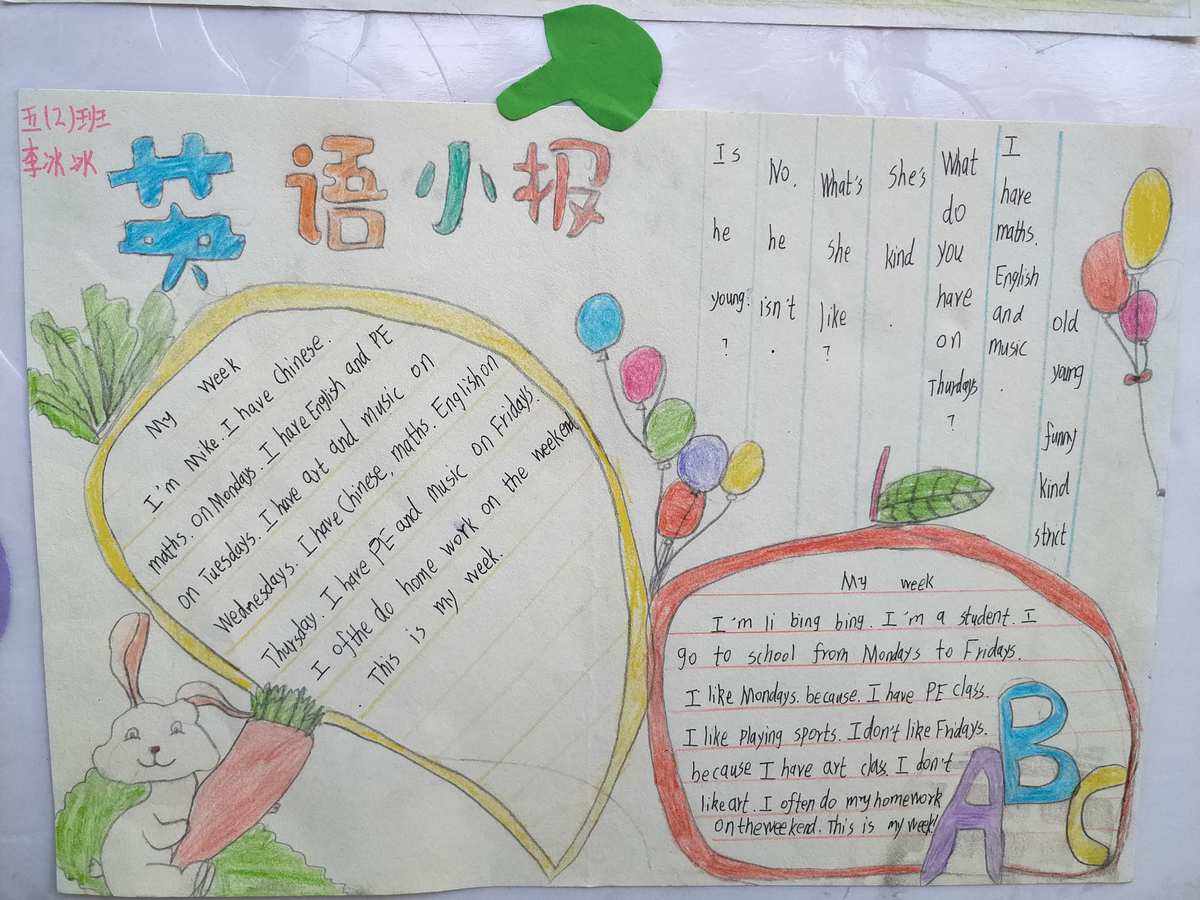 五(2)班
李冰冰
英语小报
My week
I'm Mike. I have Chinese.
maths. on Mondays. I have English and PE
on Tuesdays. I have art and music on
Wednesdays. I have Chinese, maths. English on
Thursday. I have PE and music on Fridays.
I ofthe do home work on the weekend
This is my week.
Is he young. ?
No. he isn't .
What's she like ?
She's kind .
What do you have on Thurdays ?
I have maths. English and music .
old young funny kind strict
My week
I'm li bing bing. I'm a student. I
go to school from Mondays to Fridays.
I like Mondays. because. I have PE class.
I like playing sports. I don't like Fridays.
because I have art clas. I don't
like art. I often do my homework
on the weekend. This is my week!
ABC